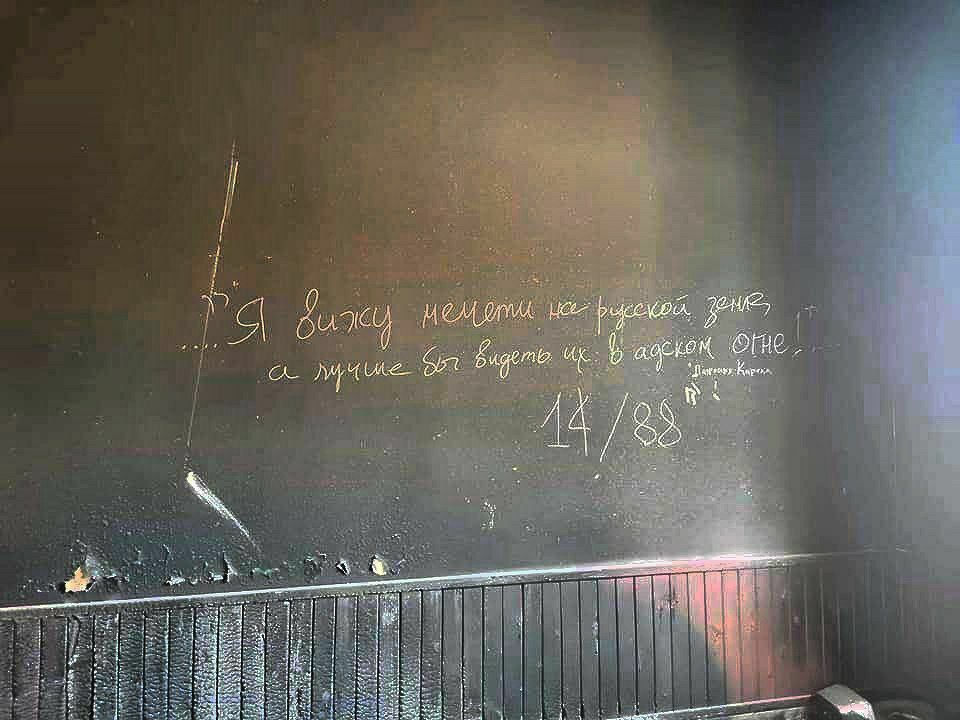 ...."Я вижу мечети на русской земле,
а лучше бы видеть их в адском огне!
14/88